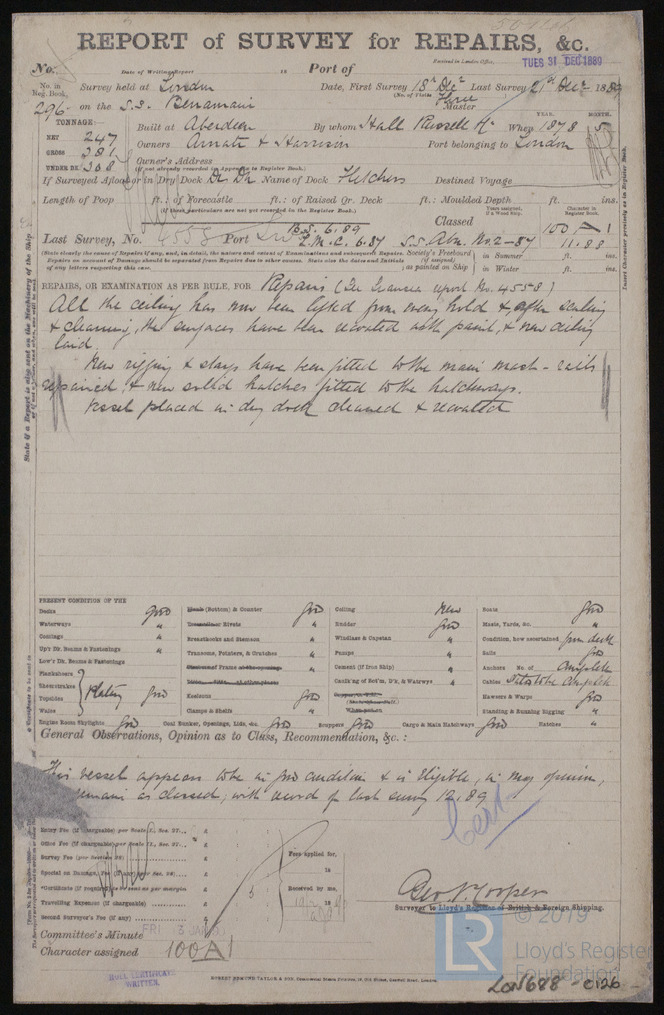 REPORT of SURVEY for REPAIRS, &c.
No.
Date of Writing Report
18
Port of
Received in London Office,
TUES 31 DEC 1889
No. in Reg. Book.
Survey held at London
Date, First Survey 18th Decr Last Survey 21st Decr 1889
(No. of Visits Three
296 on the S.S. Benamain
Master
TONNAGE:—
NET 247
GROSS 381
UNDER DK 308
Built at Aberdeen By whom Hall Russell & Co When 1878 5
YEAR. MONTH.
Owners & Harrison Port belonging to London
Owner's Address
(If not already recorded in Appendix to Register Book.)
If Surveyed Afloat or in Dry Dock Dr Dk Name of Dock Fletchers Destined Voyage
Length of Poop ft.: of Forecastle ft.: of Raised Qr. Deck ft.: Moulded Depth ft. ins.
(If these particulars are not yet recorded in the Register Book.)
Classed 100 A 1
Last Survey, No. 4558 Port
B.S. 6.89
L.M.C. 6.87 S.S. Abn. No. 2-87 11.88
Society's Freeboard (if assigned) as painted on Ship
in Summer ft. ins.
in Winter ft. ins.
REPAIRS, OR EXAMINATION AS PER RULE, FOR Repairs (See Swansea report No. 4558)
All the ceiling has now been lifted from every hold & after scaling
& cleaning, the surfaces have been recoated with paint, & new ceiling
laid.
New rigging & stays have been fitted to the main mast - rails
repaired & new solid hatches fitted to the hatchways.
Vessel placed in dry dock cleaned & recoated
PRESENT CONDITION OF THE
Decks good
Waterways "
Coatings "
Up'r Dk. Beams & Fastenings "
Low'r Dk. Beams & Fastenings
Planksheers
Sheerstrakes
Topsides
Wales
Plating good
Engine Room Skylights good
(Bottom) & Counter good
Rivets "
Breasthooks and Stemson "
Transoms, Pointers, & Crutches "
of Frame "
Keelsons good
Clamps & Shelfs "
Coal Bunker, Openings, Lids, &c. good
Scuppers good
Ceiling New
Rudder good
Windlass & Capstan "
Pumps "
Cement (if Iron Ship) "
Caulking of Bot'm, D'k, & Watrwys "
Cargo & Main Hatchways good
Boats good
Masts, Yards, &c. "
Condition, how ascertained from deck
Sails good
Anchors No. of Complete
Cables Stated to be Complete
Hawsers & Warps good
Standing & Running Rigging "
Hatches "
General Observations, Opinion as to Class, Recommendation, &c.:
This vessel appears to be in good condition & is eligible, in my opinion,
to remain as classed, with record of last survey 12.89
Cert
Entry Fee (if chargeable) per Scale I., Sec. 27... £
Office Fee (if chargeable) per Scale I., Sec. 27... £
Survey Fee (per Section 28) £
Special on Damage, Fee (if any) per Sec. 28 £
Certificate (if required) to be sent as per margin 5
Travelling Expenses (if chargeable) £
Second Surveyor's Fee (if any) £
Fees applied for,
18
Received by me,
18
Geo. N. Cooper
Surveyor to Lloyd's Register of British & Foreign Shipping.
Committee's Minute FRI 3 JAN 90
Character assigned 100A1
HULL CERTIFICATE
WRITTEN.
© 2019
LR
Lloyd's Register
Foundation
LON688-0126